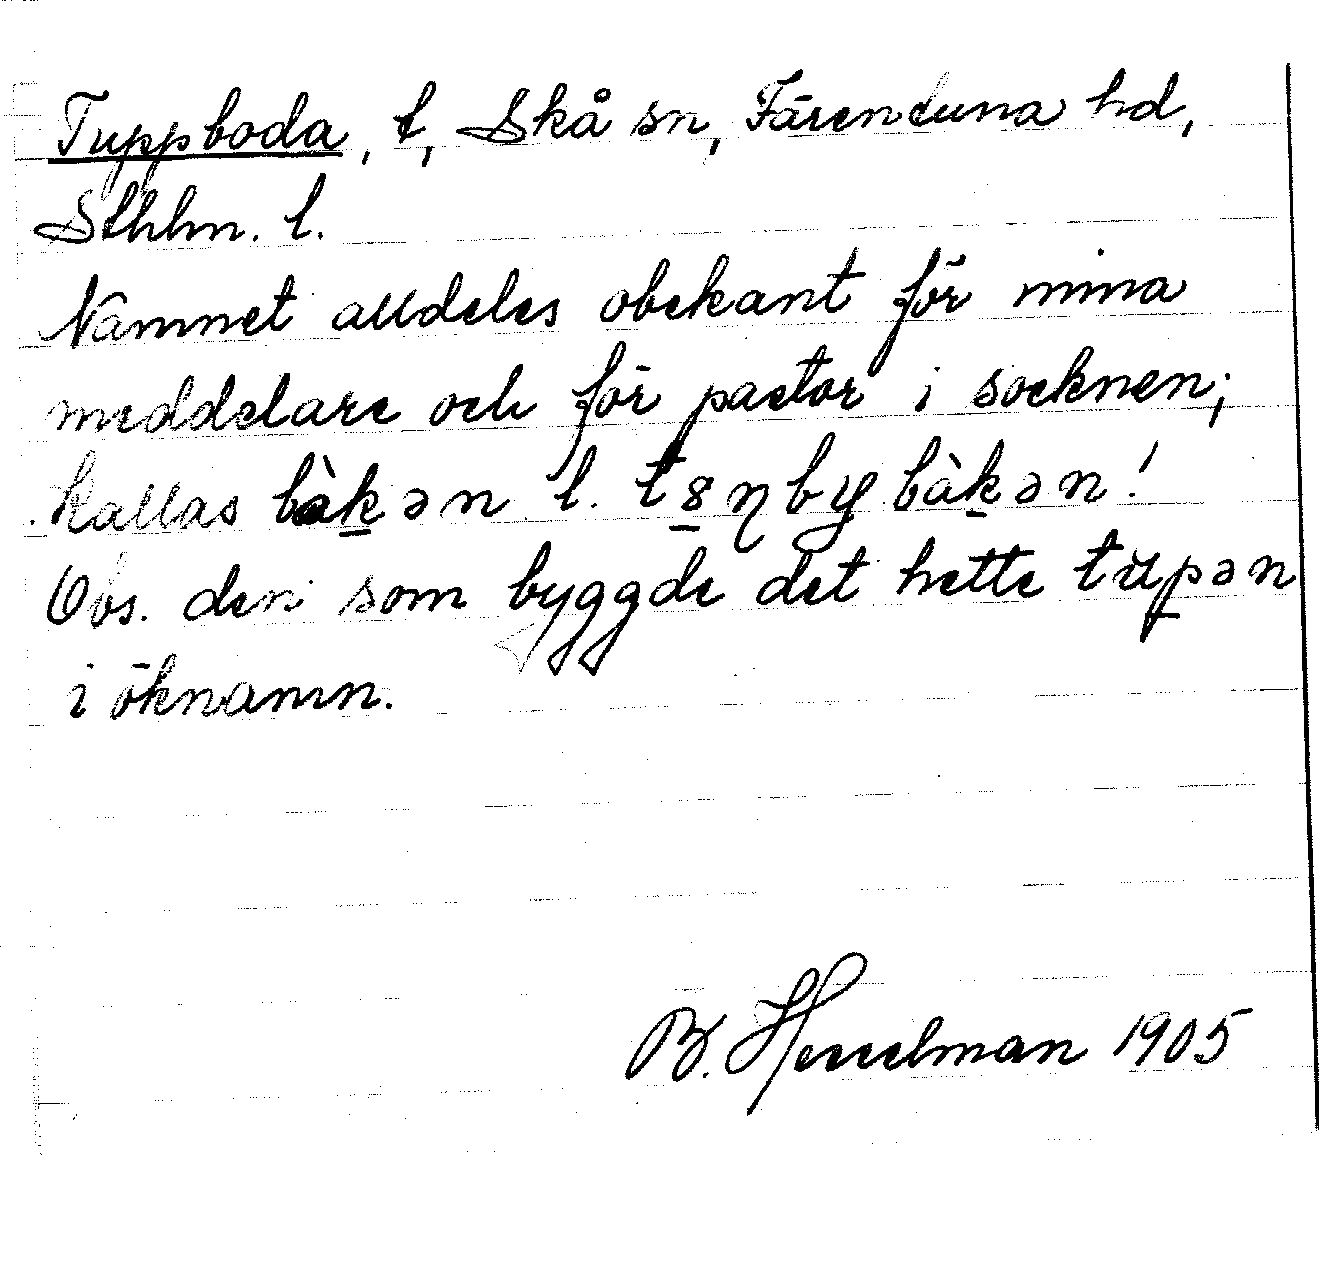 Tuppboda, t, Skå sn, Färentuna hd,
Sthlm. l.
Namnet alldeles obekant för mina
meddelare och för pastor i socknen;
kallas bàk̲ən l. t8̲ŋby bàk̲ən!
Obs. den som byggde det hette tùp̲ən
i öknamn.
B. Hesselman 1905